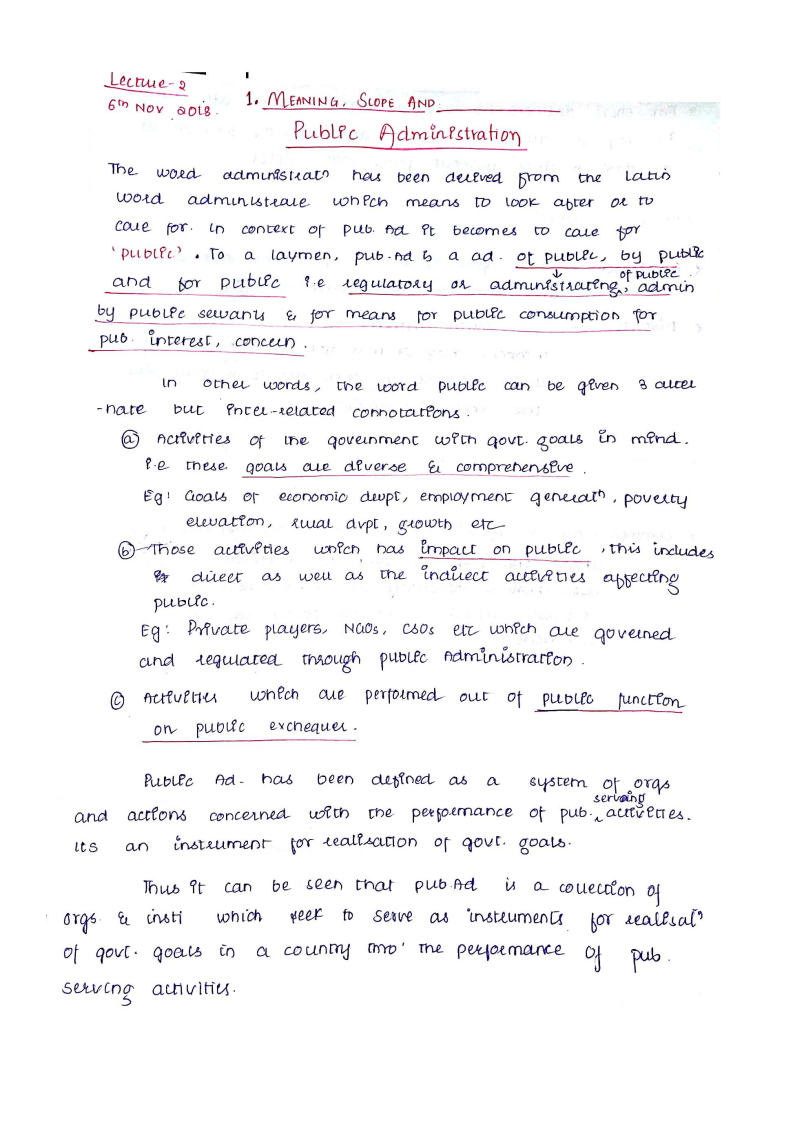 Lecture-2
6th NOV 2018.
1. MEANING, SCOPE AND
Public Administration
The word administratn has been derived from the Latin
word administrare which means to look after or to
care for. In context of pub. Ad it becomes to care for
'public'. To a laymen, pub. Ad is a ad. of public, by public
and for public i.e regulatory or administrating of public, admin
by public servants & for means for public consumption for
pub. interest, concern.
In other words, the word public can be given 3 alter
-nate but inter-related connotations.
(a) Activities of the government with govt. goals in mind.
i.e these goals are diverse & comprehensive.
Eg: Goals of economic devpt, employment generatn, poverty
elevation, rural dvpt, growth etc
(b) Those activities which has impact on public, this includes
direct as well as the indirect activities affecting
public.
Eg: Private players, NGOs, CSOs etc which are governed
and regulated through public Administration.
(c) Activities which are performed out of public function
on public exchequer.
Public Ad- has been defined as a system of orgs
and actions concerned with the performance of pub. serving activities.
Its an instrument for realisation of govt. goals.
Thus it can be seen that pub. Ad is a collection of
orgs & insti which seek to serve as instruments for realisatn
of govt. goals in a country thro' the performance of pub.
serving activities.